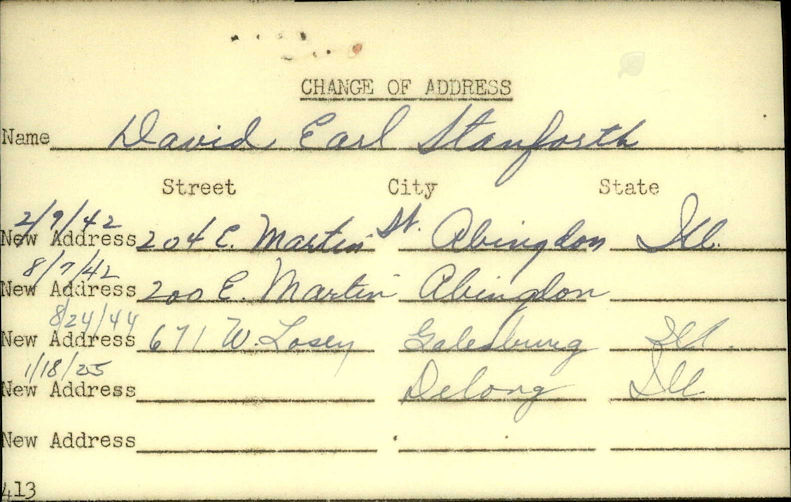 CHANGE OF ADDRESS
Name David Earl Stanforth
Street City State
2/9/42
New Address 204 E. Martin St. Abingdon Ill.
8/7/42
New Address 200 E. Martin Abingdon
8/24/44
New Address 671 W. Losey Galesburg Ill.
1/18/25
New Address Delong Ill
New Address
413